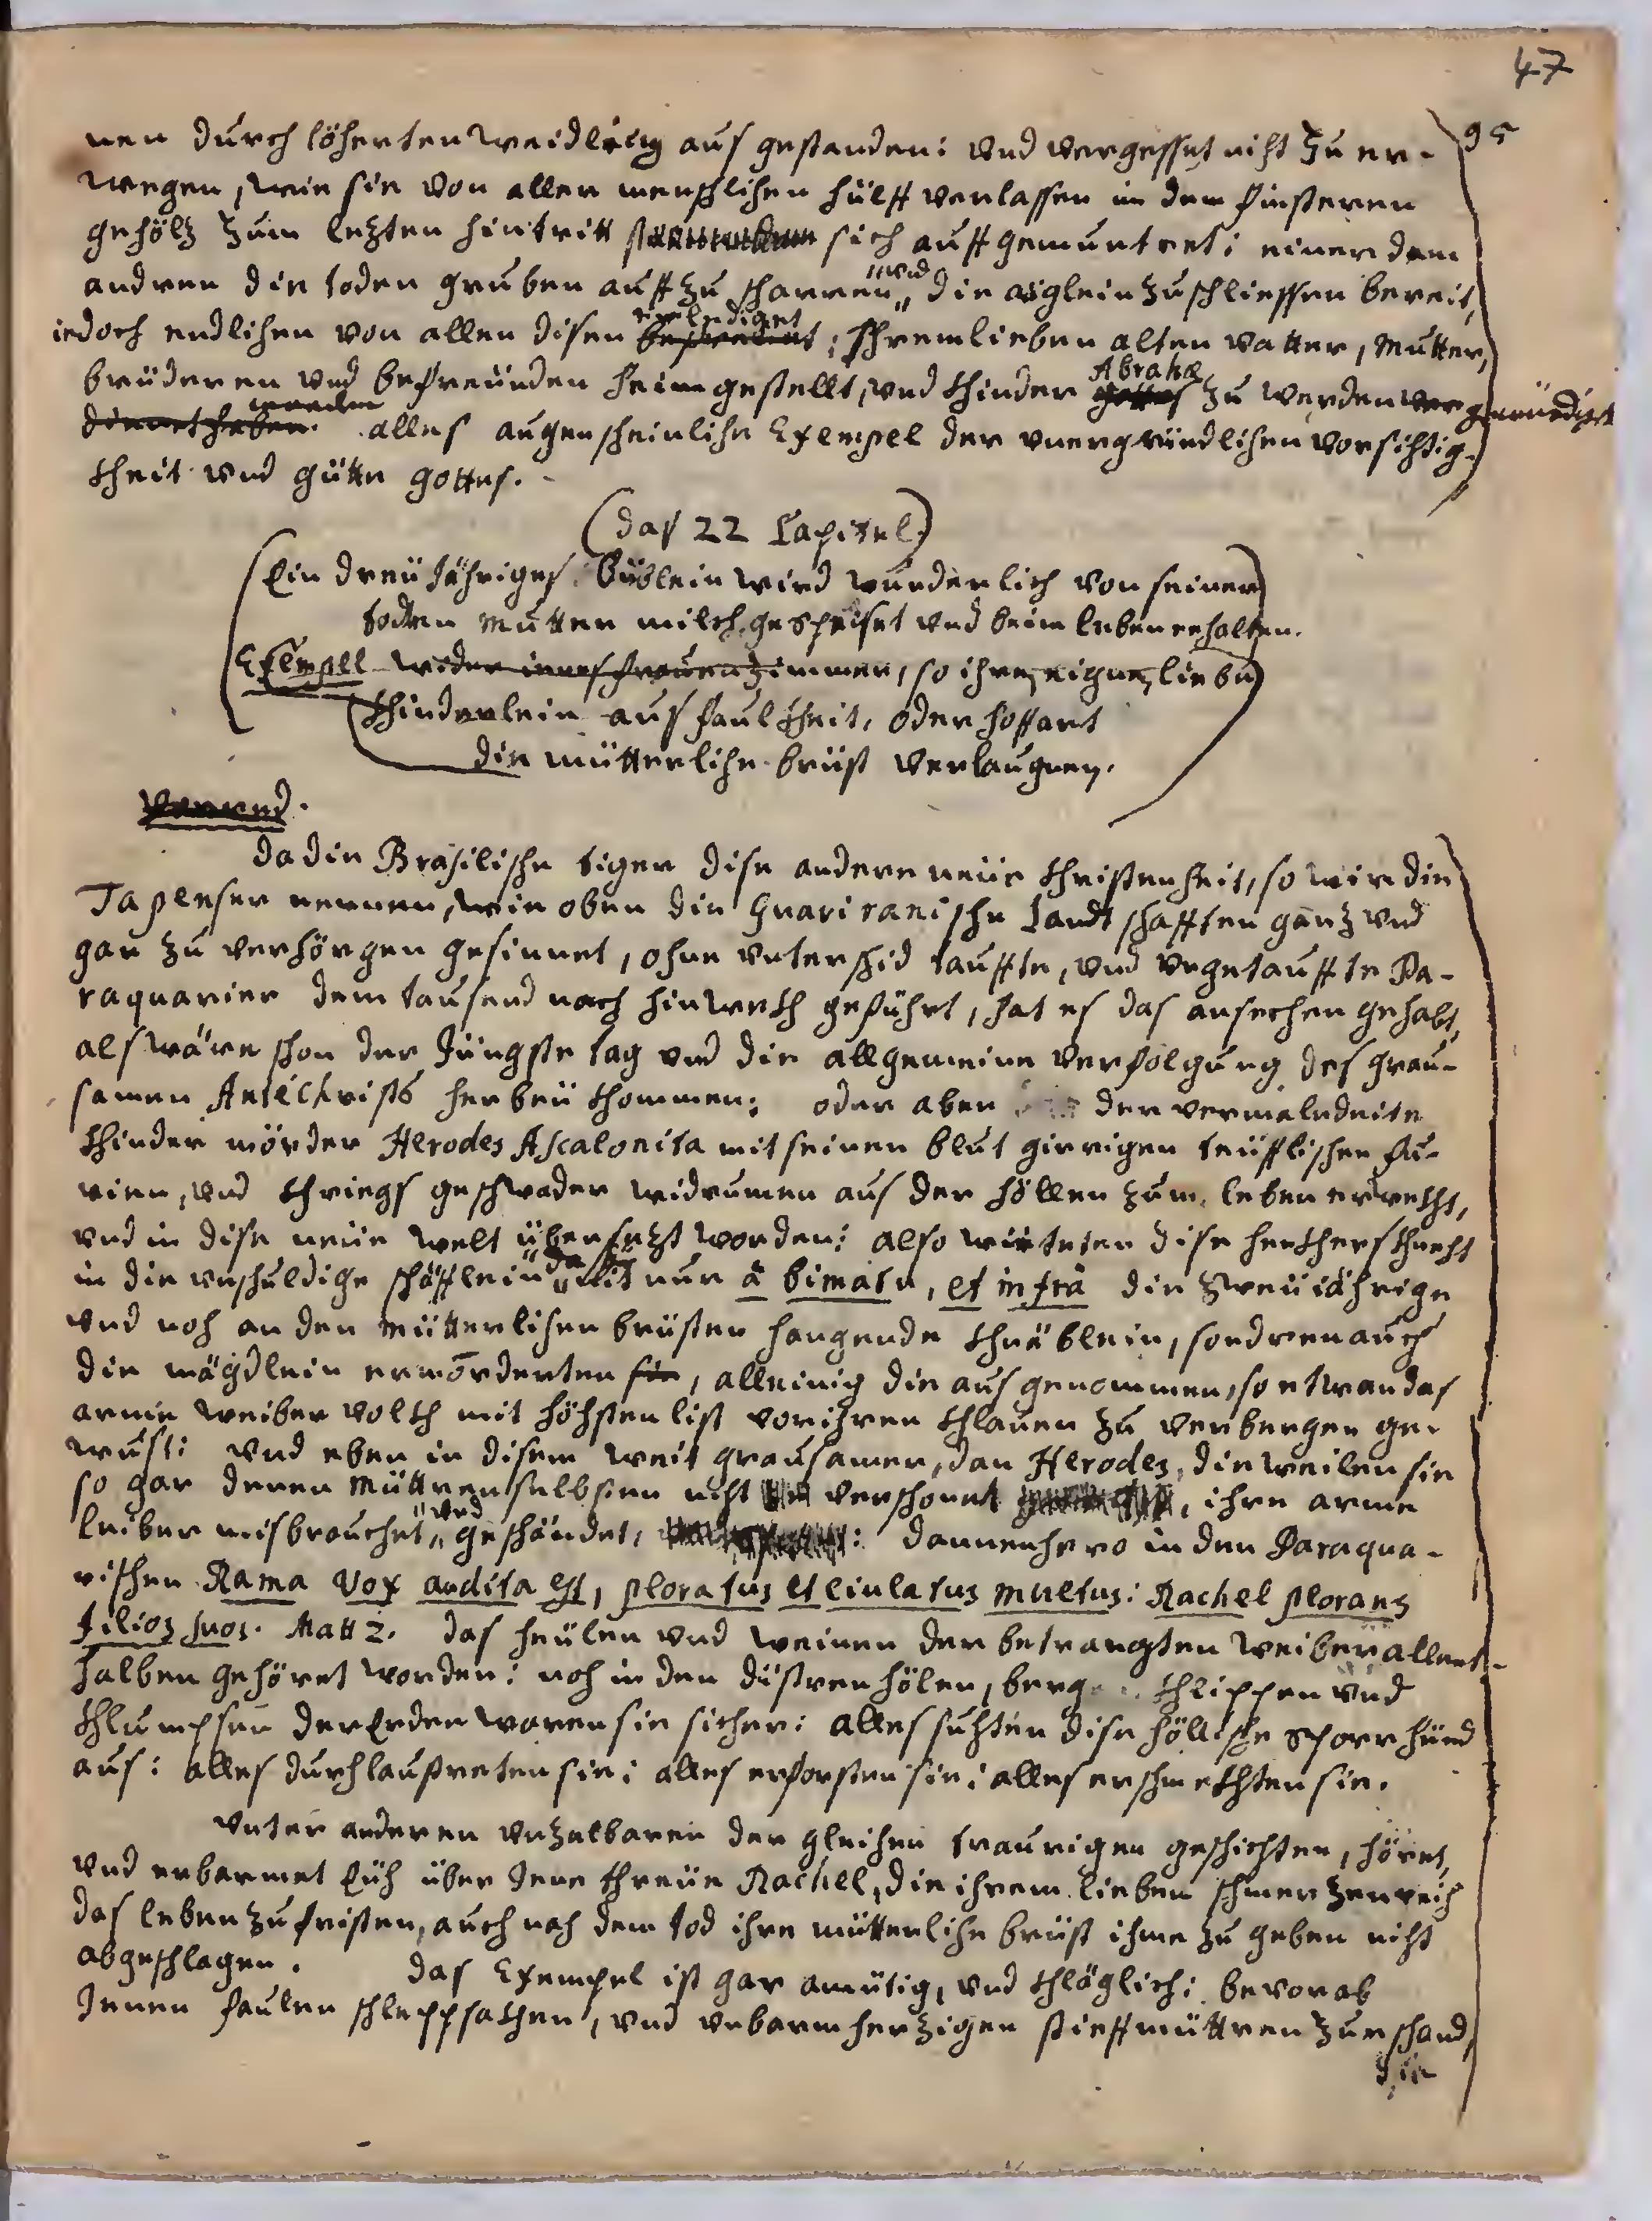 47
95
nen durch löherten weidlich aus gestanden: vnd vergesset niht zu er-
wegen, wie sie von aller menschlihen hülff verlassen in dem finsteren
gehöltz zum letzten hintritt sich auff gemuntret: einer dem
andren die toden gruben auff zu scharren „vnd„ die aüglein zuschliessen bereit,
iedoch endlihen von allen disen erlediget, ihrem lieben alten vatter, mutter,
brüderen vnd befreünden heim gestellt, vnd khinder Abrahæ zu werden gewürdiget
worden. alles augenscheinlihe Exempel der vnergründlihen vorsihtig-
kheit vnd gütte gottes.
(das 22 Capitel)
Ein dreü Jähriges Büblein wird wunderlich von seiner
todten mutter milch gespeiset vnd beim leben erhalten.
Exempell wider ienes frauenzimmer, so ihre eigne liebe
khinderlein aus faulkheit, oder hoffart
die mütterlihe brüst verlaugnen.
da die Brasilische tiger dise andere neüe christenheit, so wir die
Tapenser nennen, wie oben die Guariranische Landtschafften gantz vnd
gar zu verhörgen gesinnet, ohne vnterschid tauffte, vnd vngetauffte Pa-
raquarier dem tausend nach hinwekh geführt, hat es das ansechen gehabt,
als wäre schon der Jüngste tag vnd die allgemeine verfolgung des grau-
samen Antéchrists herbeü khommen: oder aber der vermaledeite
khinder mörder Herodes Ascalonita mit seinen blut girrigen teüfflischen fu-
rien, vnd khriegs geschwader widerumen aus der höllen zum leben erwekht,
vnd in dise neüe welt übersetzt worden: also wüeteten dise henkhers khneht
in die vnschuldige schäfflein „da sie„ nit nur à bimatu, et infrà die zweüiährige
vnd noh an den mütterlihen brüsten hangende khnäblein, sondren auch
die mägdlein ermörderten, alleinig die aus genommen, so etwan das
arme weiber volkh mit höhsten list vor ihren khlauen zu verbergen ge-
wust: vnd eben in disem weit grausamer, dan Herodes, dieweilen sie
so gar deren müttren selbsten niht verschonet, ihre arme
leiber misbrauchet „vnd„ geschändet,: dannenhero in den Paraqua-
rischen Rama vox audita est, ploratus et eiulatus multus: Rachel plorans
filios suos. Matt 2. das heülen vnd weinen der betrangten weiber allent-
halben gehöret worden: noh in den düstren hölen, berg khlippen vnd
khlumpsen der Erden waren sie sicher: alles suhten dise höllische spürhünd
aus: alles durhlaustreten sie: alles erforsten sie: alles erschmekhten sie.
vnter anderen vnzalbaren der gleihen traurigen geschichten, höret,
vnd erbarmet Eüh über Jene threüe Rachel, die ihrem lieben schmerzenreich
das leben zu fristen, auch nah dem tod ihre mütterlihe brüst ihme zu geben niht
abgeschlagen. das Exempel ist gar amütig, vnd khläglich: bevorab
Jenen faulen schleppsakhen, vnd vnbarmherzigen stieffmüttren zur schand,
die